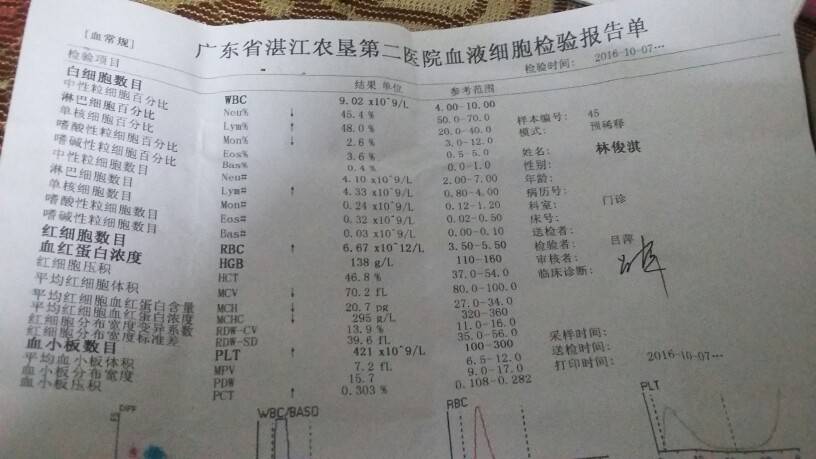 [血常规]
广东省湛江农垦第二医院血液细胞检验报告单
检验时间: 2016-10-07...
检验项目 结果 单位 参考范围
白细胞数目 WBC 9.02 x10^9/L 4.00-10.00
中性粒细胞百分比 Neu% ↓ 45.4 % 50.0-70.0
淋巴细胞百分比 Lym% ↑ 48.0 % 20.0-40.0
单核细胞百分比 Mon% ↓ 2.6 % 3.0-12.0
嗜酸性粒细胞百分比 Eos% 3.6 % 0.5-5.0
嗜碱性粒细胞百分比 Bas% 0.4 % 0.0-1.0
中性粒细胞数目 Neu# 4.10 x10^9/L 2.00-7.00
淋巴细胞数目 Lym# ↑ 4.33 x10^9/L 0.80-4.00
单核细胞数目 Mon# 0.24 x10^9/L 0.12-1.20
嗜酸性粒细胞数目 Eos# 0.32 x10^9/L 0.02-0.50
嗜碱性粒细胞数目 Bas# 0.03 x10^9/L 0.00-0.10
红细胞数目 RBC ↑ 6.67 x10^12/L 3.50-5.50
血红蛋白浓度 HGB 138 g/L 110-160
红细胞压积 HCT 46.8 % 37.0-54.0
平均红细胞体积 MCV ↓ 70.2 fL 80.0-100.0
平均红细胞血红蛋白含量 MCH ↓ 20.7 pg 27.0-34.0
平均红细胞血红蛋白浓度 MCHC ↓ 295 g/L 320-360
红细胞分布宽度变异系数 RDW-CV 13.9 % 11.0-16.0
红细胞分布宽度标准差 RDW-SD 39.6 fL 35.0-56.0
血小板数目 PLT ↑ 421 x10^9/L 100-300
平均血小板体积 MPV 7.2 fL 6.5-12.0
血小板分布宽度 PDW 15.7 9.0-17.0
血小板压积 PCT ↑ 0.303 % 0.108-0.282
样本编号: 45
模式: 预稀释
姓名: 林俊淇
性别:
年龄:
病历号:
科室: 门诊
床号:
送检者:
检验者: 吕萍
审核者:
临床诊断:
采样时间:
送检时间:
打印时间: 2016-10-07...
DIFF
WBC/BASO
RBC
PLT